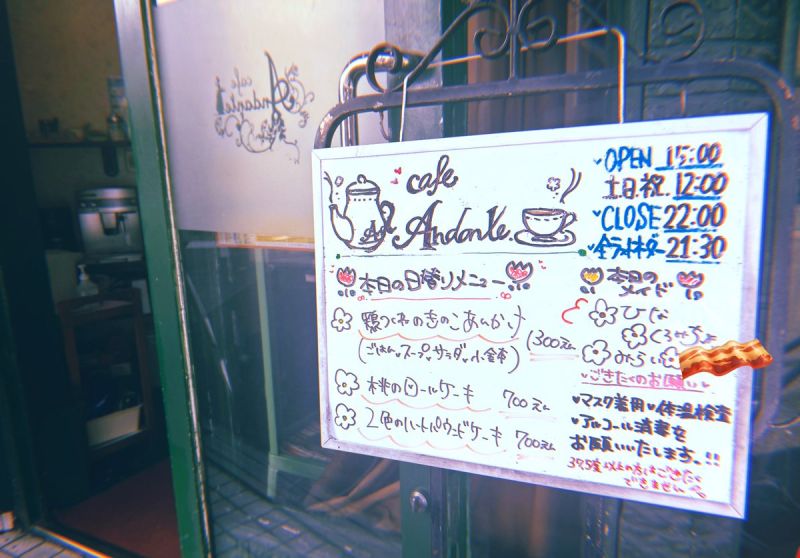 cafe
Andante
cafe
Andante.
OPEN 15:00
土日祝. 12:00
CLOSE 22:00
21:30
本日の日替りメニュー
鶏つくねのきのこあんかけ
(ごはん スープ サラダ 小鉢)
1300えん
桃のロールケーキ 700えん
2色のハートパウンドケーキ 700えん
本日の
メイド
ひな
くろせちよ
みらい
ごきたくのお願い
マスク着用 体温検査
アルコール消毒を
お願いいたします。!!
37.5度以上の方はごきたく
できません